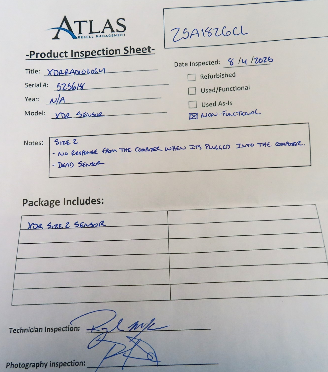 ATLAS
ZSA1826CL
-Product Inspection Sheet-
Title: XDR RADIOLOGY
Date Inspected: 8/4/2020
Serial #: 525618
Refurbished
Year: N/A
Used/Functional
Model: XDR SENSOR
Used As-Is
NON FUNCTIONAL
Notes: SIZE 2
- NO RESPONSE FROM THE COMPUTER WHEN IT IS PLUGGED INTO THE COMPUTER.
- DEAD SENSOR
Package Includes:
XDR SIZE 2 SENSOR
Technician Inspection:
Photography Inspection: